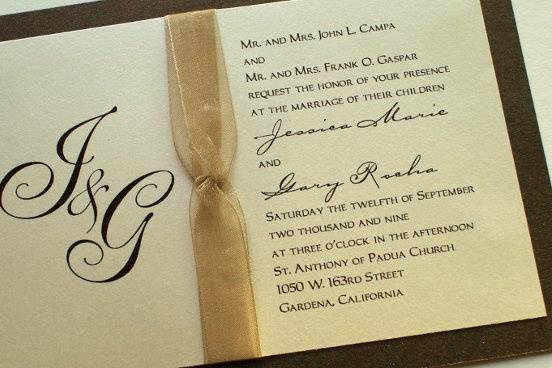 J
&
G
Mr. and Mrs. John L. Campa
and
Mr. and Mrs. Frank O. Gaspar
request the honor of your presence
at the marriage of their children
Jessica Marie
and
Gary Rocha
Saturday the twelfth of September
two thousand and nine
at three o'clock in the afternoon
St. Anthony of Padua Church
1050 W. 163rd Street
Gardena, California